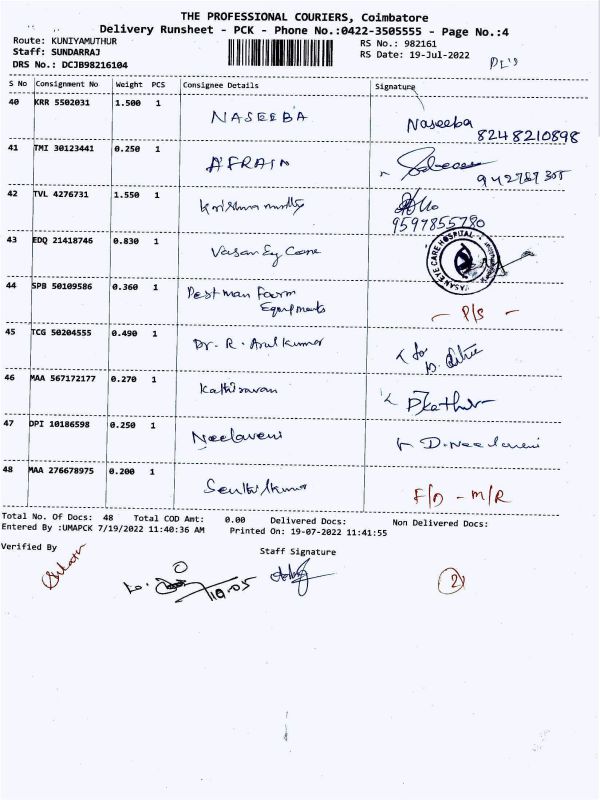 THE PROFESSIONAL COURIERS, Coimbatore
Delivery Runsheet - PCK - Phone No.:0422-3505555 - Page No.:4
Route: KUNIYAMUTHUR RS No.: 982161
Staff: SUNDARRAJ RS Date: 19-Jul-2022
DRS No.: DCJB98216104
S No Consignment No Weight PCS Consignee Details Signature
40 KRR 5502031 1.500 1 NASEEBA Naseeba
8248210898
41 TMI 30123441 0.250 1 AFRAIN
42 TVL 4276731 1.550 1 Krishnamurthy
9597855780
43 EDQ 21418746 0.830 1 Vasan Eye Care
VASAN EYE CARE HOSPITAL
44 SPB 50109586 0.360 1 Pestman Farm
Equipments P/S
45 TCG 50204555 0.490 1 Dr. R. Arul kumar
46 MAA 567172177 0.270 1 Kathiravan
47 DPI 10186598 0.250 1 Neelaveni D. Neelaveni
48 MAA 276678975 0.200 1 Senthilkumar F/D - M/R
Total No. Of Docs: 48 Total COD Amt: 0.00 Delivered Docs: Non Delivered Docs:
Entered By :UMAPCK 7/19/2022 11:40:36 AM Printed On: 19-07-2022 11:41:55
Verified By Staff Signature
19.05
2